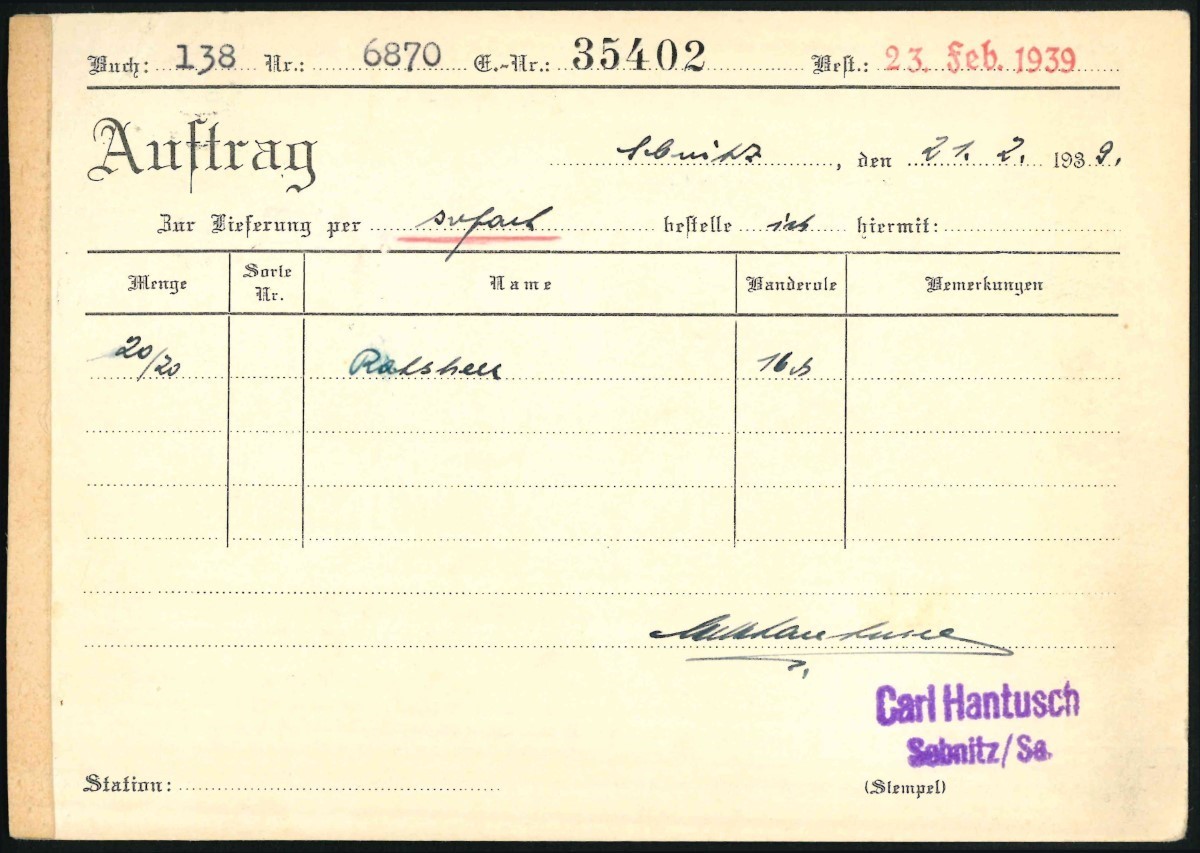 Buch: 138 Nr.: 6870 E.-Nr.: 35402 Best.: 23. Feb. 1939
Auftrag
Sebnitz, den 21. 2. 1939.
Zur Lieferung per sofort bestelle ich hiermit:
Menge Sorte Nr. Name Banderole Bemerkungen
20/20 Ratsherr
Carl Hantusch
Sebnitz/Sa.
Station: (Stempel)